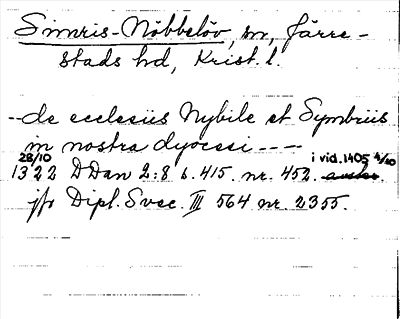 Simris-Nöbbelöv, sn, Järre-
stads hd, Krist. l.
--de ecclesiis Nybile et Symbriis
in nostra dyocesi ----
28/10 i vid. 1405 4/10
1322 DDan 2:8 s. 415. nr. 452.
jfr Dipl. Svec. III 564 nr 2355.